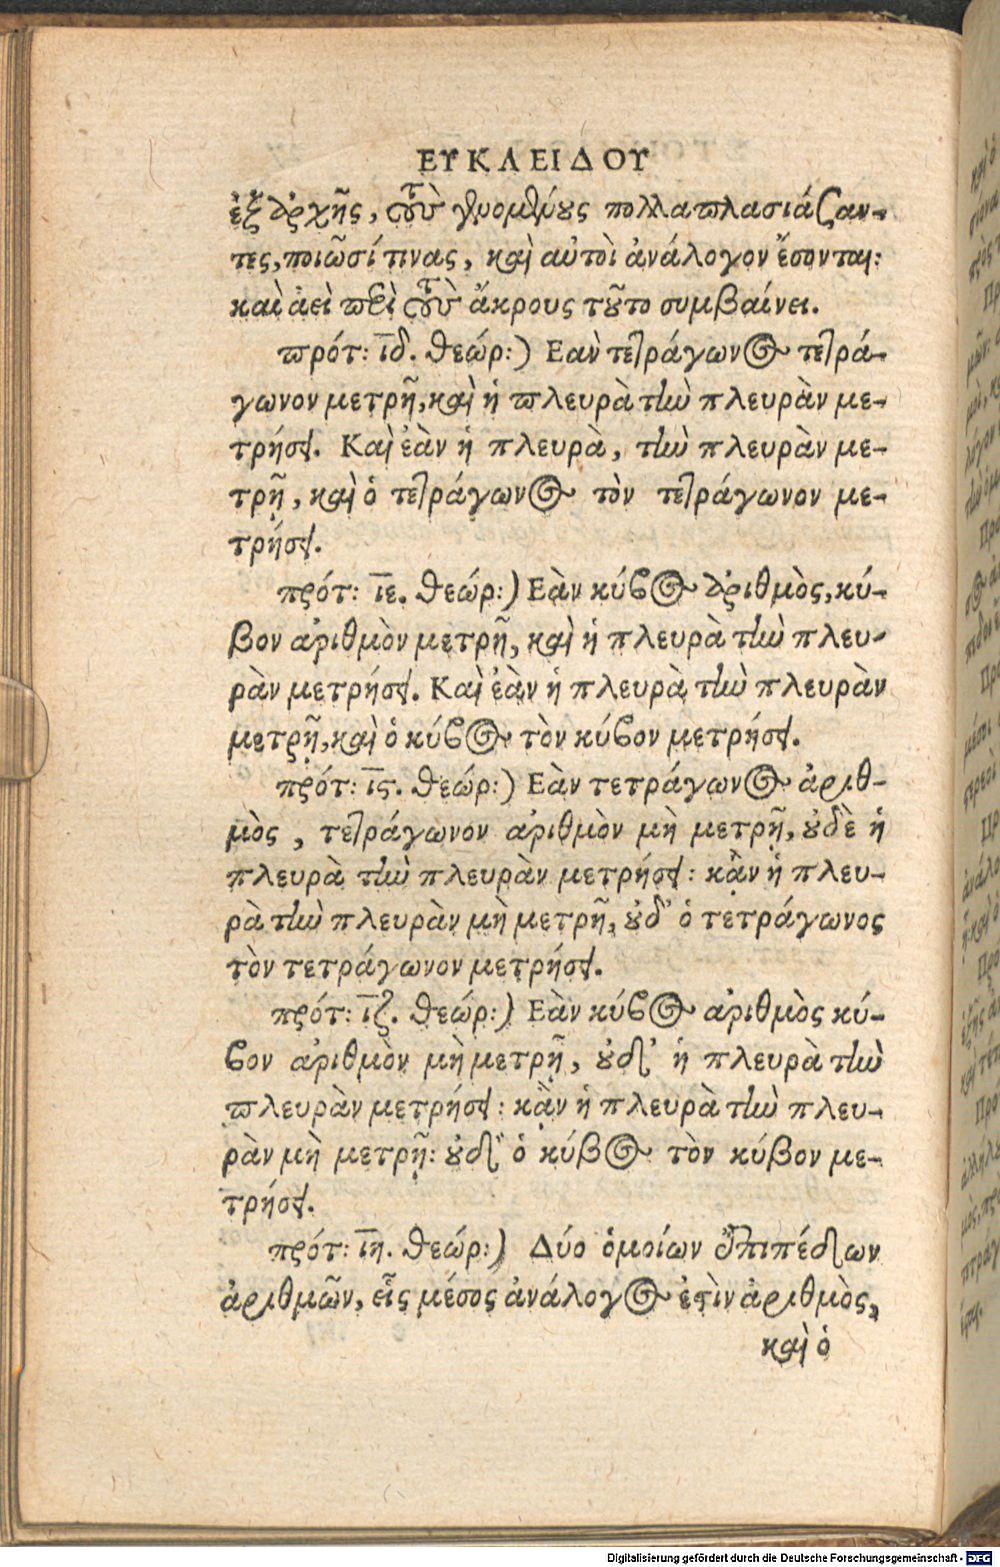 ΕΥΚΛΕΙΔΟΥ
ἐξ ἀρχῆς, τοὺς γενομένους πολλαπλασιάζαν-
τες, ποιῶσί τινας, καὶ αὐτοὶ ἀνάλογον ἔσονται:
καὶ ἀεὶ περὶ τοὺς ἄκρους τοῦτο συμβαίνει.
πρότ: ιδ. θεώρ:) Εαν τετράγωνος τετρά-
γωνον μετρῇ, καὶ ἡ πλευρὰ τὴν πλευρὰν με-
τρήσει. Καὶ ἐὰν ἡ πλευρὰ, τὴν πλευρὰν με-
τρῇ, καὶ ὁ τετράγωνος τὸν τετράγωνον με-
τρήσει.
πρότ: ιε. θεώρ:) Εὰν κύβος ἀριθμὸς, κύ-
βον ἀριθμὸν μετρῇ, καὶ ἡ πλευρὰ τὴν πλευ-
ρὰν μετρήσει. Καὶ ἐὰν ἡ πλευρὰ τὴν πλευρὰν
μετρῇ, καὶ ὁ κύβος τὸν κύβον μετρήσει.
πρότ: ις. θεώρ:) Εὰν τετράγωνος ἀριθ-
μὸς, τετράγωνον ἀριθμὸν μὴ μετρῇ, οὐδὲ ἡ
πλευρὰ τὴν πλευρὰν μετρήσει: κἂν ἡ πλευ-
ρὰ τὴν πλευρὰν μὴ μετρῇ, οὐδ' ὁ τετράγωνος
τὸν τετράγωνον μετρήσει.
πρότ: ιζ. θεώρ:) Εὰν κύβος ἀριθμὸς κύ-
βον ἀριθμὸν μὴ μετρῇ, οὐδ' ἡ πλευρὰ τὴν
πλευρὰν μετρήσει: κἂν ἡ πλευρὰ τὴν πλευ-
ρὰν μὴ μετρῇ: οὐδ' ὁ κύβος τὸν κύβον με-
τρήσει.
πρότ: ιη. θεώρ:) Δύο ὁμοίων ἐπιπέδων
ἀριθμῶν, εἷς μέσος ἀνάλογος ἐστὶν ἀριθμὸς,
καὶ ὁ
Digitalisierung gefördert durch die Deutsche Forschungsgemeinschaft - DFG